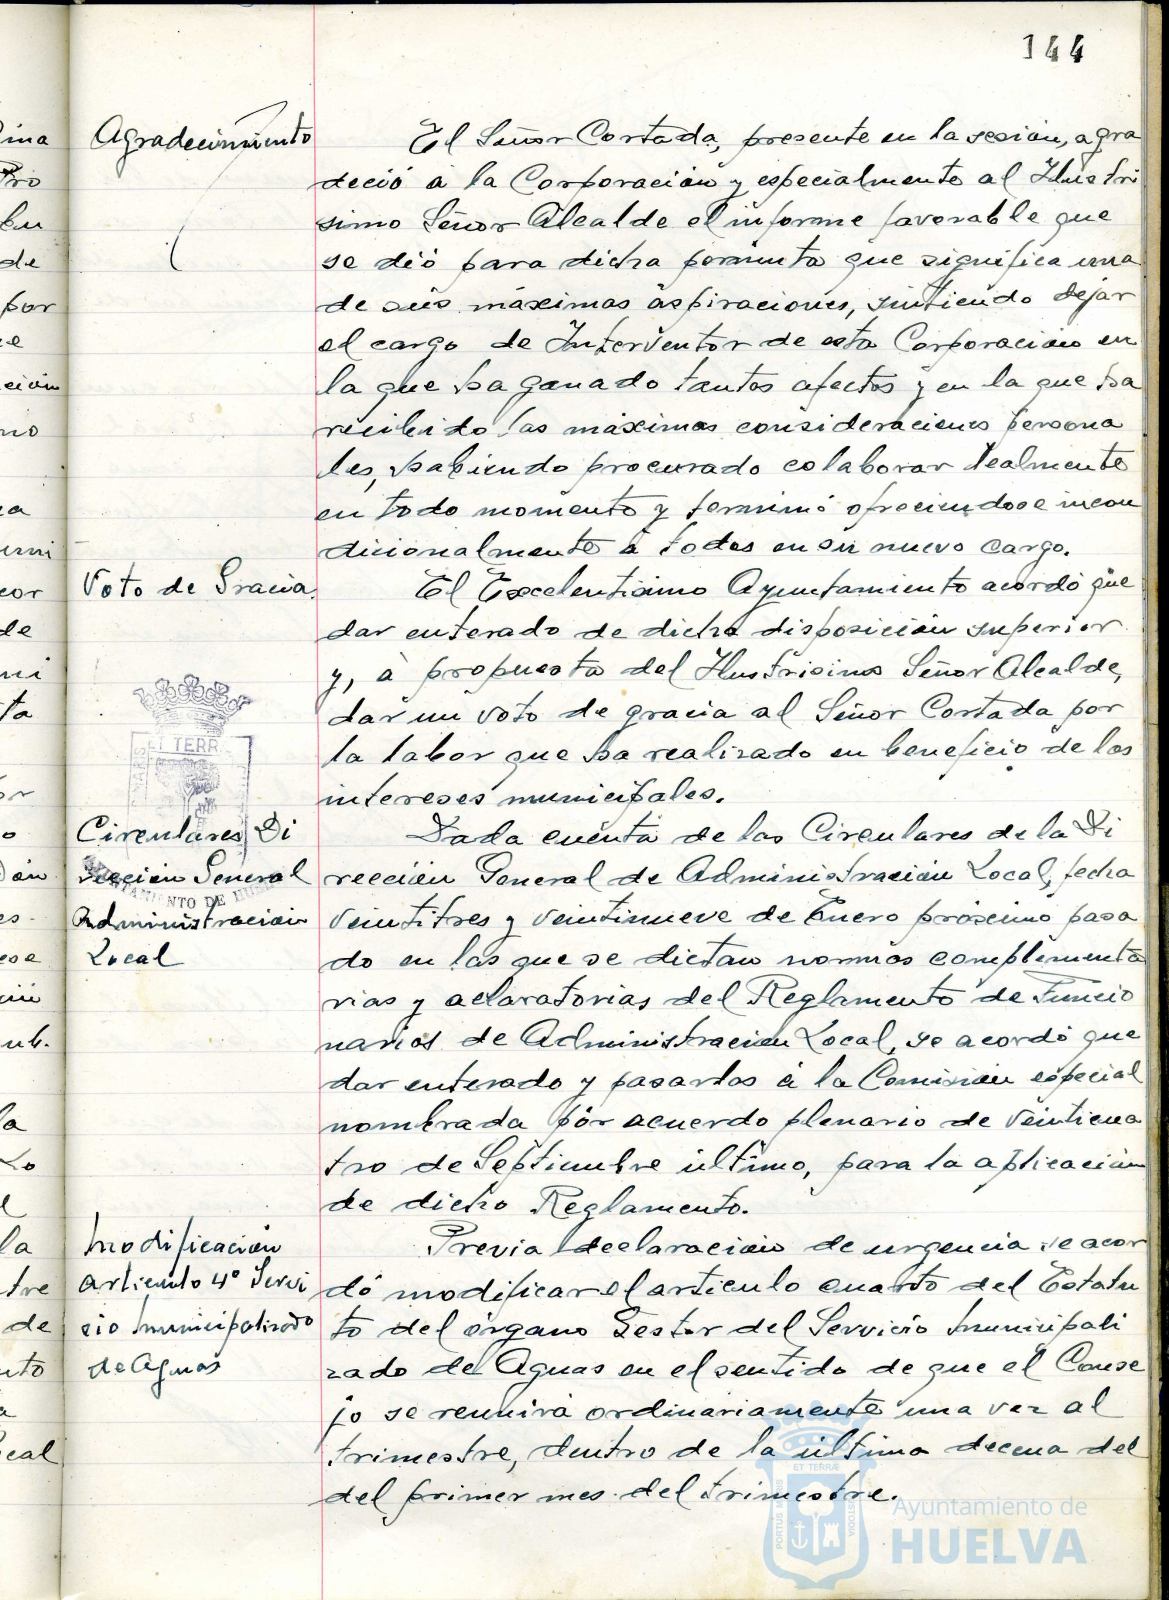 144
Agradecimiento
El Señor Cortada, presente en la sesión, agra
deció a la Corporación y especialmente al Ilustri
simo Señor Alcalde el informe favorable que
se dió para dicha permuta que significa una
de sus máximas aspiraciones, sintiendo dejar
el cargo de Interventor de esta Corporación en
la que ha ganado tantos afectos y en la que ha
recibido las máximas consideraciones persona
les, habiendo procurado colaborar lealmente
en todo momento y terminó ofreciendose incon
dicionalmente a todos en su nuevo cargo.
Voto de Gracia.
El Excelentisimo Ayuntamiento acordó que
dar enterado de dicha disposición superior
y, a propuesta del Ilustrisimo Señor Alcalde,
dar un voto de gracia al Señor Cortada por
la labor que ha realizado en beneficio de los
intereses municipales.
Circulares Di
rección General
Administración
Local
Dada cuenta de las Circulares de la Di
rección General de Administración Local, fecha
veintitres y veintinueve de Enero próximo pasa
do en las que se dictan normas complementa
rias y aclaratorias del Reglamento de Funcio
narios de Administración Local, se acordó que
dar enterado y pasarlas á la Comisión especial
nombrada por acuerdo plenario de veinticua
tro de Septiembre último, para la aplicación
de dicho Reglamento.
Modificación
artículo 4º Servi
cio Municipalizado
de Aguas
Previa declaración de urgencia se acor
dó modificar el artículo cuarto del Estatu
to del órgano Gestor del Servicio Municipali
zado de Aguas en el sentido de que el Conse
jo se reunirá ordinariamente una vez al
trimestre, dentro de la última decena del
del primer mes del trimestre.
Ayuntamiento de
HUELVA